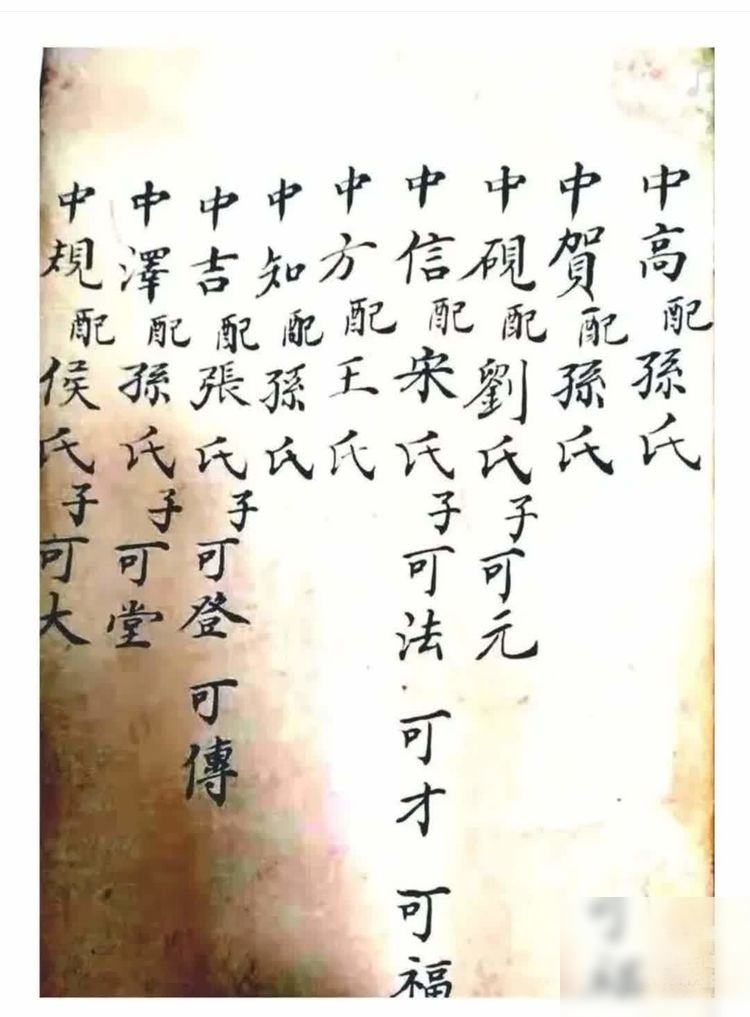 中高配孫氏
中賀配孫氏
中硯配劉氏子可元
中信配宋氏子可法 可才 可福
中方配王氏
中知配孫氏
中吉配張氏子可登 可傳
中澤配孫氏子可堂
中規配侯氏子可大